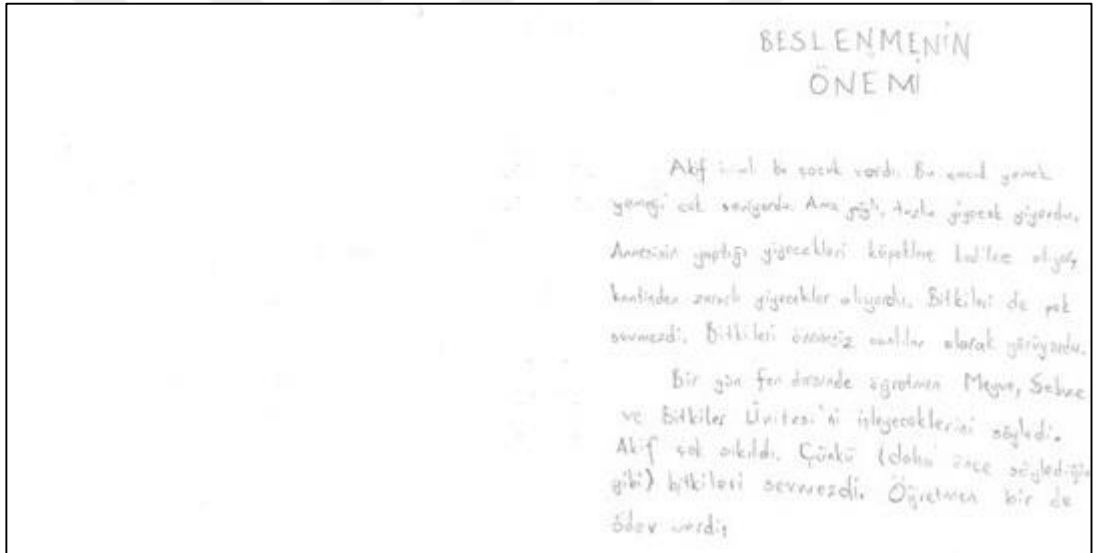 BESLENMENİN
ÖNEMİ
Akif isimli bir çocuk vardı. Bu çocuk yemek
yemeği çok seviyordu. Ama yağlı, tuzlu yiyecek yiyordu.
Annesinin yaptığı yiyecekleri köpeklere kedilere atıyor,
kantinden zararlı yiyecekler alıyordu. Bitkileri de pek
sevmezdi. Bitkileri önemsiz canlılar olarak görüyordu.
Bir gün fen dersinde öğretmen Meyve, Sebze
ve Bitkiler Ünitesi'ni işleyeceklerini söyledi.
Akif çok sıkıldı. Çünkü (daha önce söylediğim
gibi) bitkileri sevmezdi. Öğretmen bir de
ödev verdi;